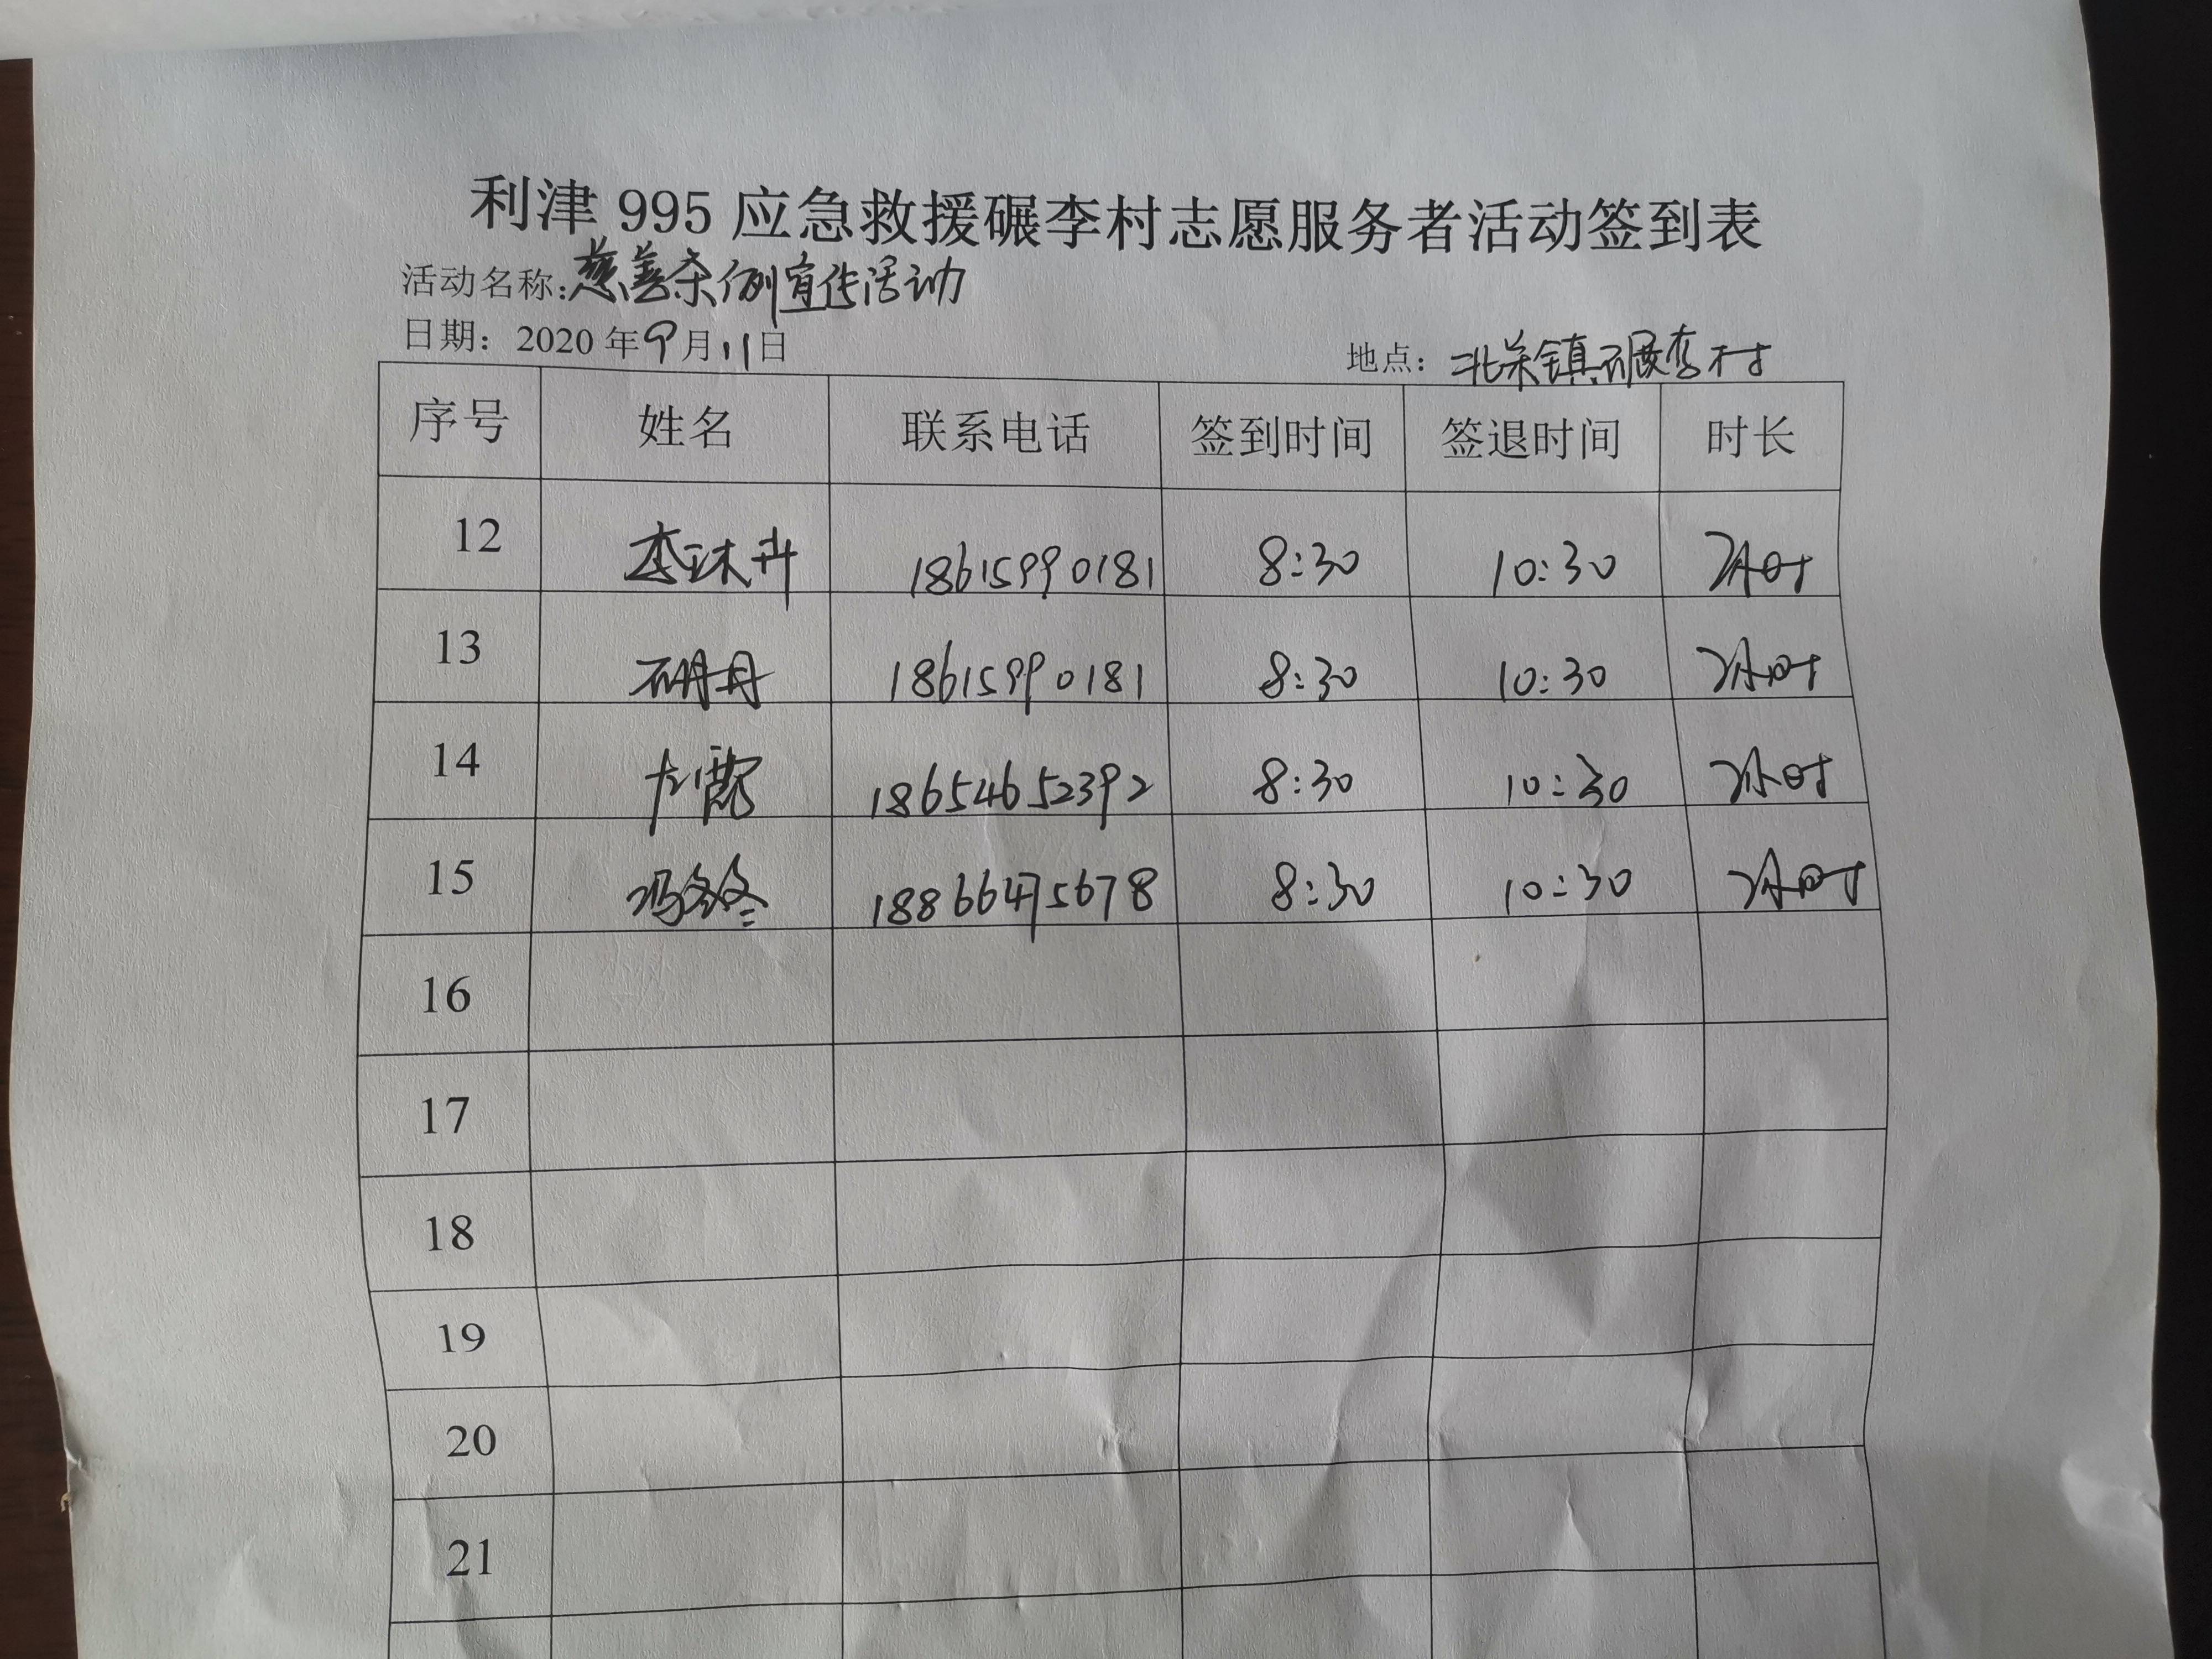 利津 995 应急救援碾李村志愿服务者活动签到表
活动名称:慈善条例宣传活动
日期: 2020 年 9 月 11 日 地点: 北宋镇碾李村
序号 姓名 联系电话 签到时间 签退时间 时长
12 李 18615990181 8:30 10:30 2小时
13 丹丹 18615990181 8:30 10:30 2小时
14 左 18654652392 8:30 10:30 2小时
15 冯冬冬 18866475678 8:30 10:30 2小时
16
17
18
19
20
21